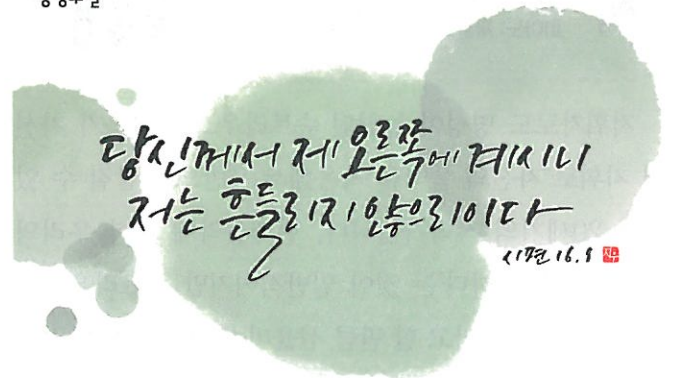 당신께서 제 오른쪽에 계시니
저는 흔들리지 않으리이다
시편 16.8